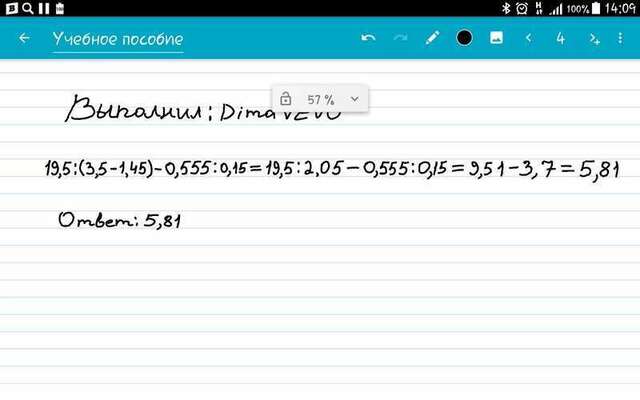 100% 14:09
Учебное пособие 4
57 %
Выполнил: Dima VEVO
19,5:(3,5-1,45)-0,555:0,15=19,5:2,05-0,555:0,15=9,51-3,7=5,81
Ответ: 5,81